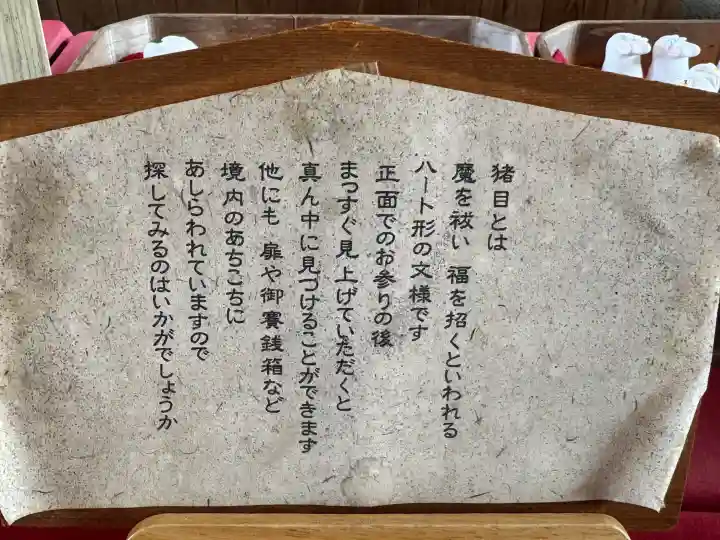 猪目とは
魔を祓い 福を招くといわれる
ハート形の文様です
正面でのお参りの後
まっすぐ見上げていただくと
真ん中に見つけることができます
他にも 扉や御賽銭箱など
境内のあちこちに
あしらわれていますので
探してみるのはいかがでしょうか